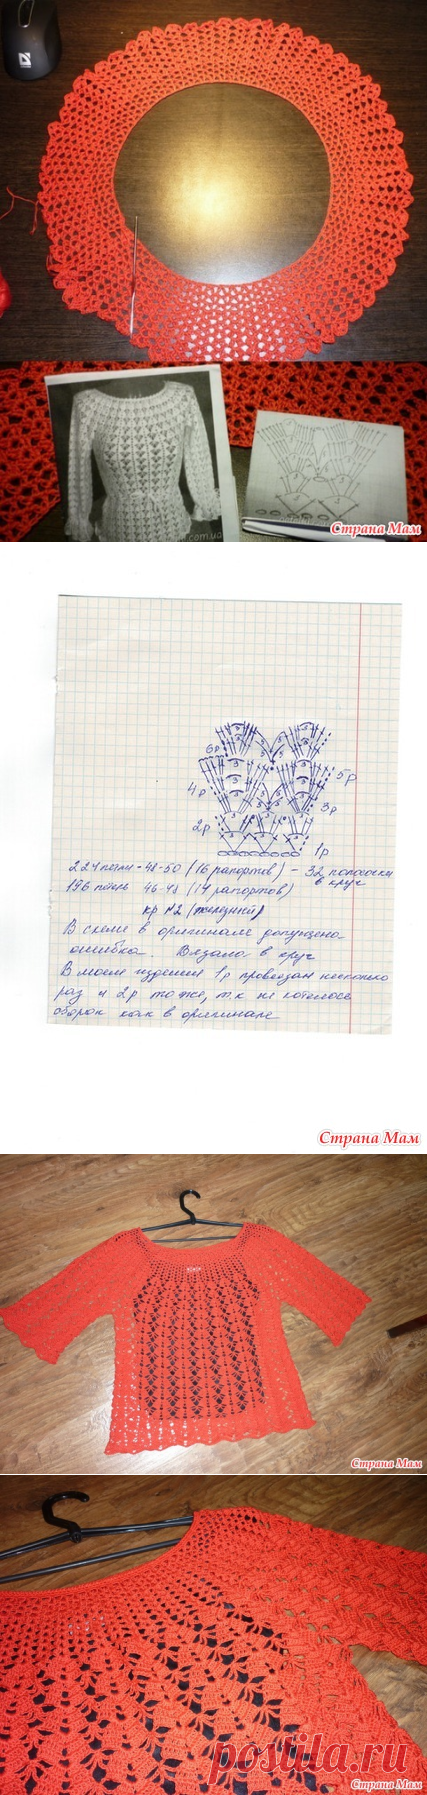 com.ua
Страна Мам
6р
5р
4р
3р
2р
1р
224 петли - 48-50 (16 рапортов) - 32 полоски
в круг
196 петель 46-48 (14 рапортов)
кр №2 (железный)
В схеме в оригинале допущена
ошибка. Вязала в круг
В моем изделие 1р провязан несколько
раз и 2р тоже, т.к не хотелось
оборок как в оригинале
Страна Мам
Страна Мам
postila.ru
Страна Мам